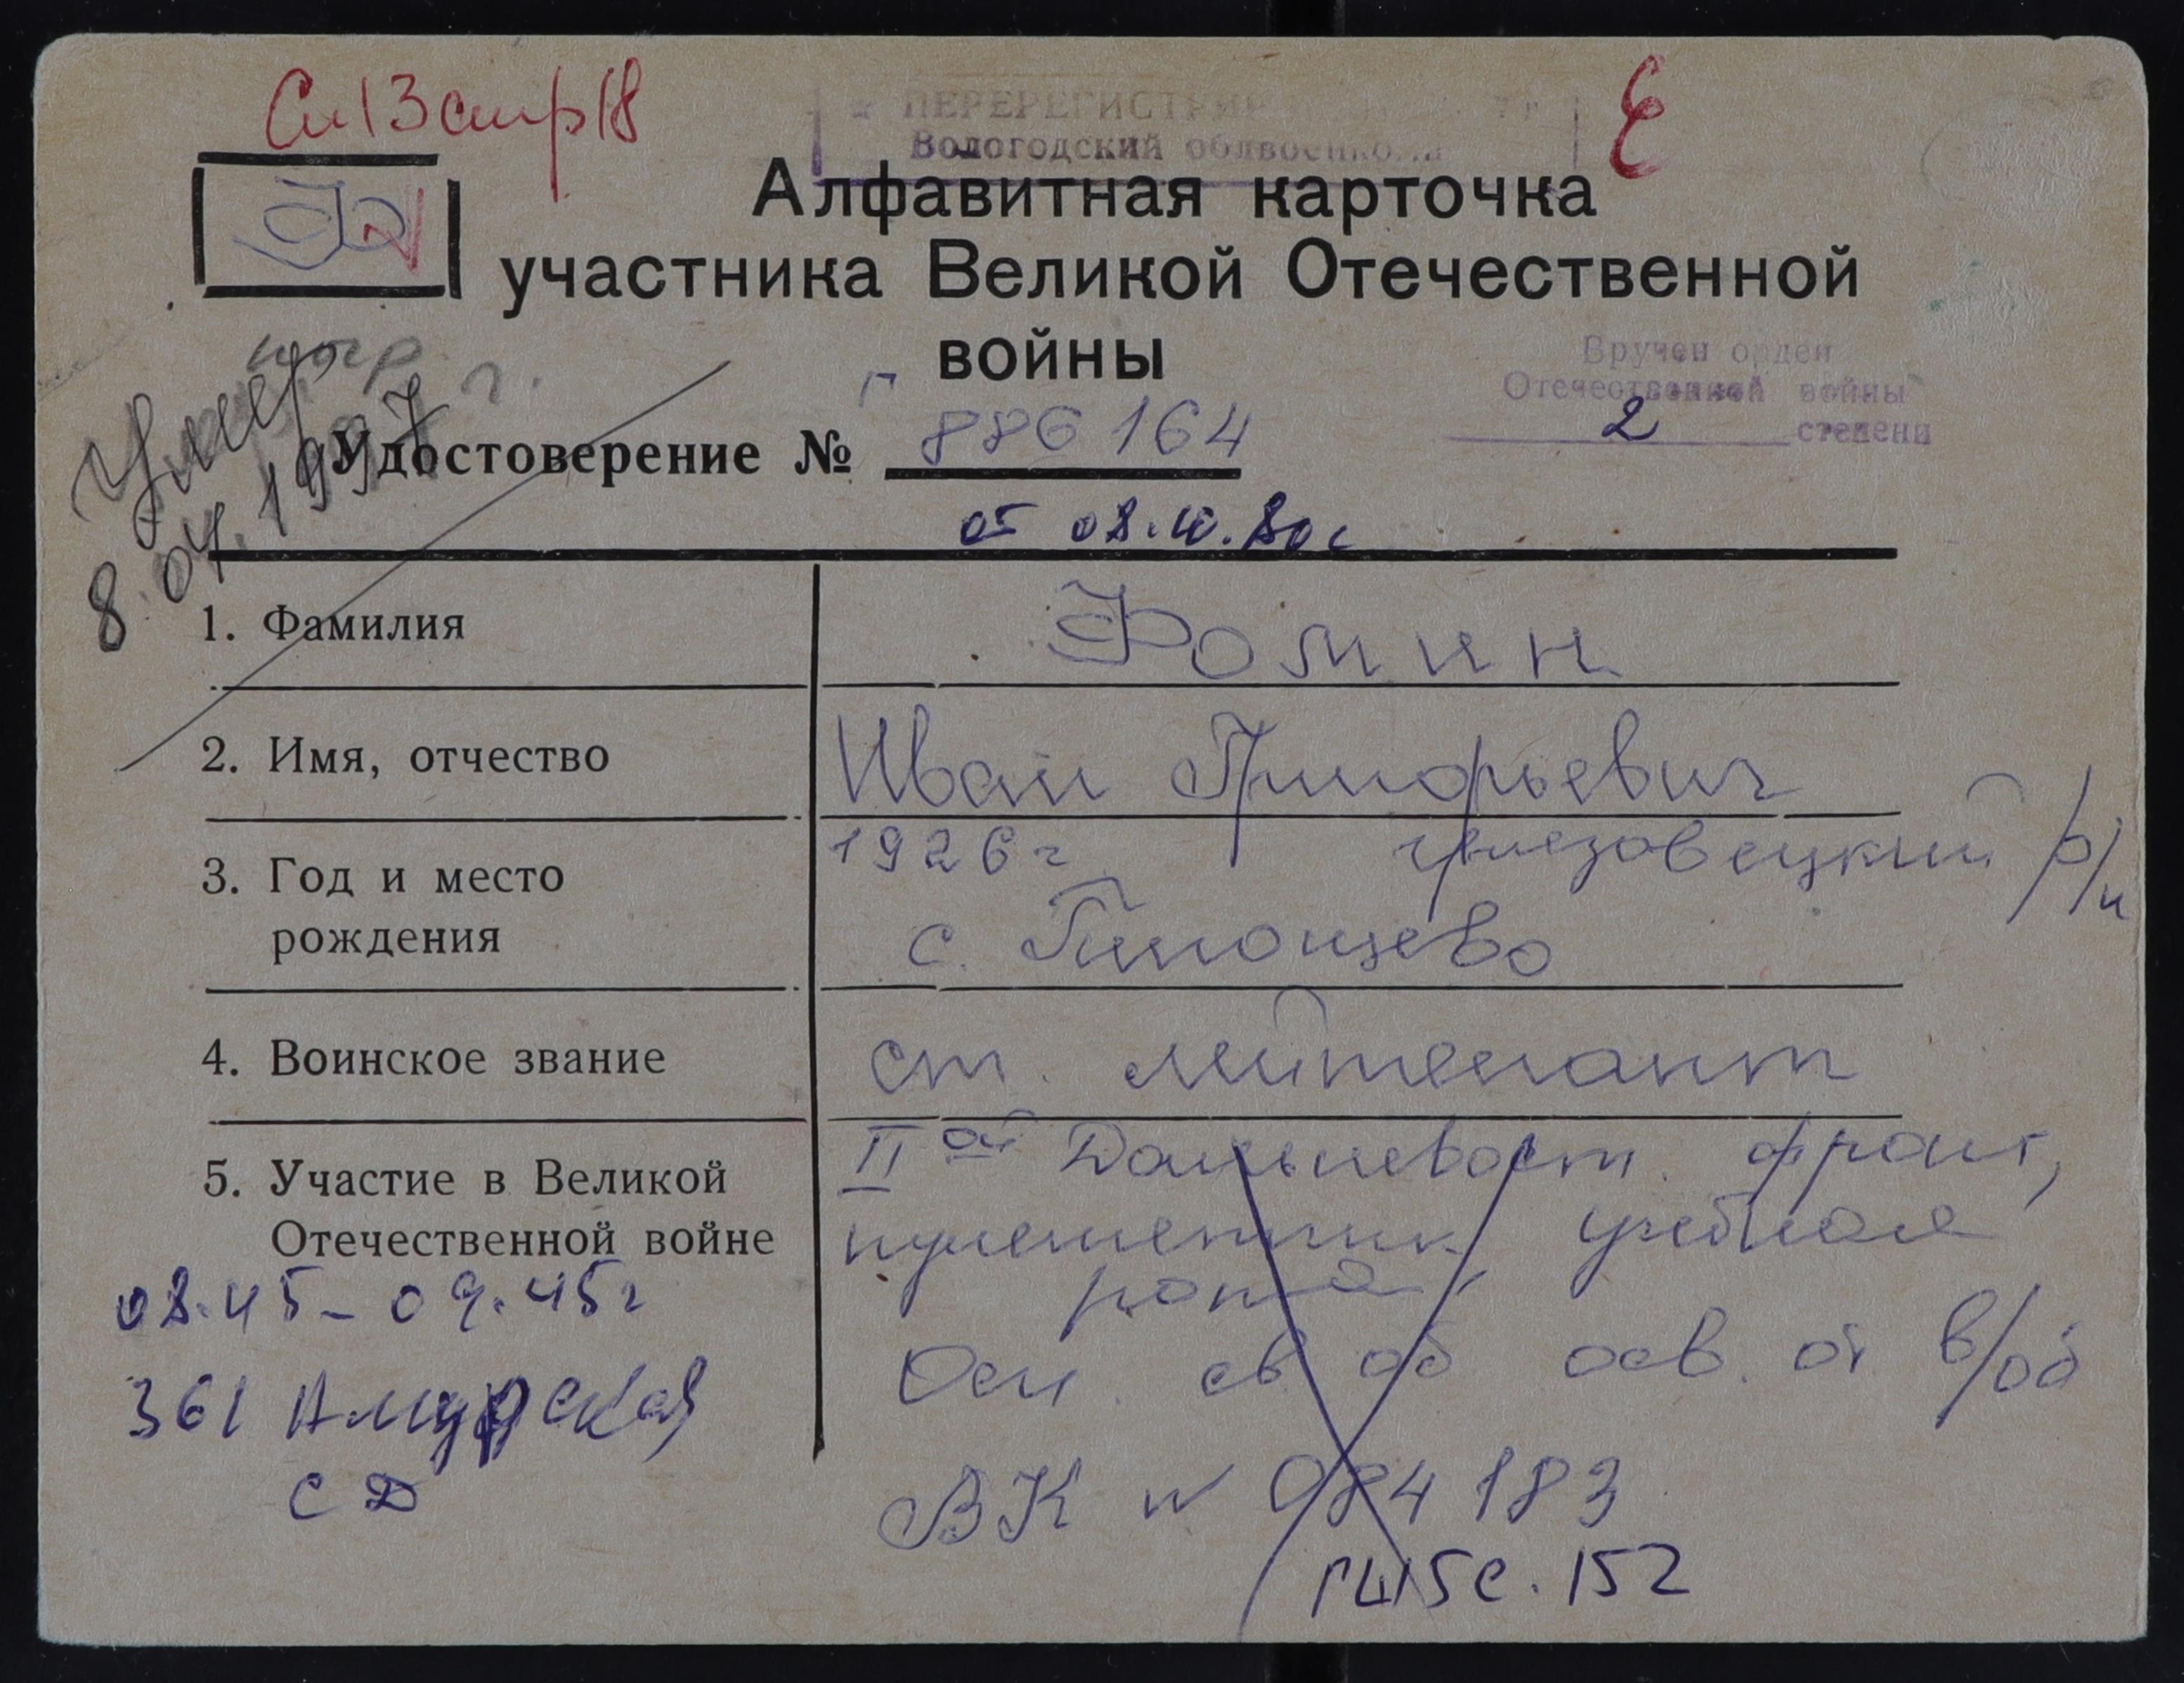 Сп 13 стр 18
Е
ПЕРЕРЕГИСТРИР
Вологодский облвоенком
Ф
Алфавитная карточка
участника Великой Отечественной
войны
Вручен орден
Отечественной войны
2 степени
Умер
8.04.1997 г.
Удостоверение № Г 886164
от 08.10.80г
1. Фамилия
Фомин
2. Имя, отчество
Иван
3. Год и место рождения
1926 г. Грязовецкий р/н
с.
4. Воинское звание
ст. лейтенант
5. Участие в Великой Отечественной войне
II ой Дальневост. фронт,
пулеметчик, учебная
рота,
Осн. св об осв. от в/об
ВК № 084183
08.45 - 09.45г
361 Амурская
СД
с. 152